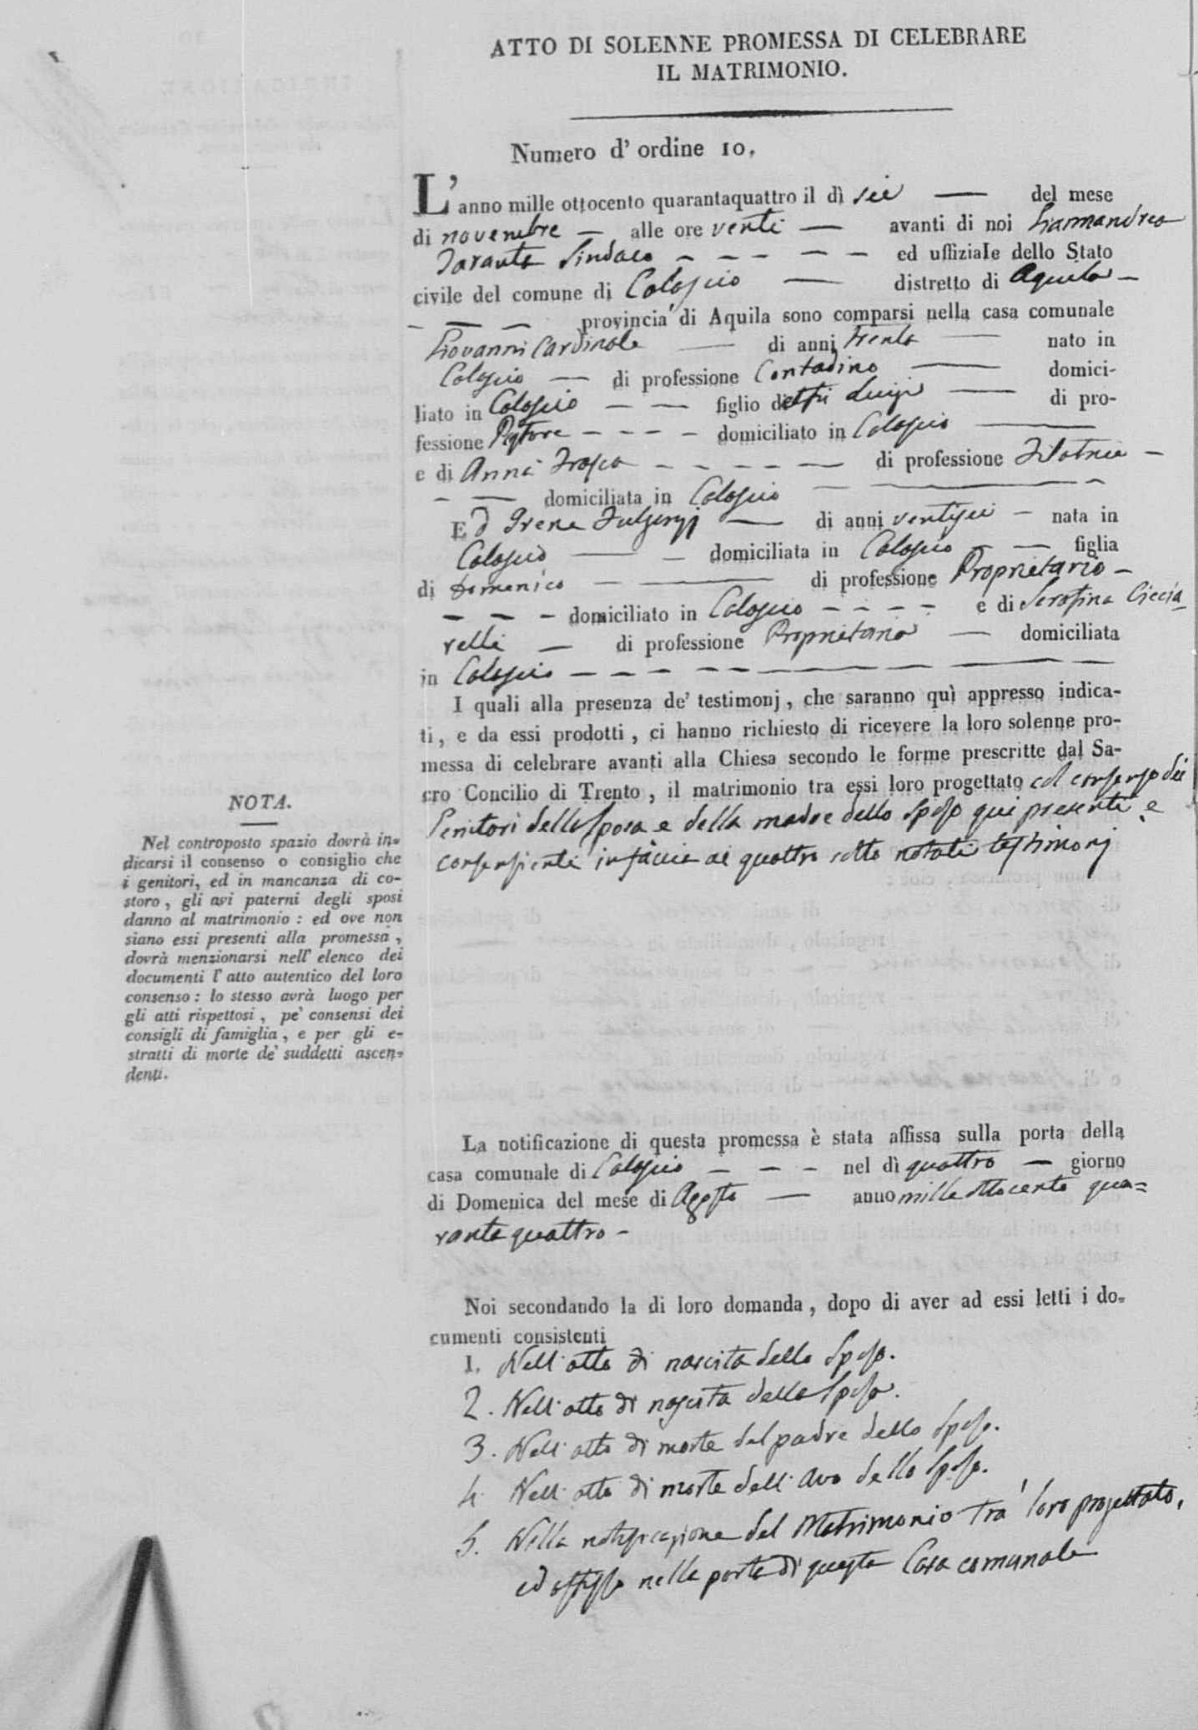 ATTO DI SOLENNE PROMESSA DI CELEBRARE
IL MATRIMONIO.
Numero d' ordine 10.
L' anno mille ottocento quarantaquattro il dì sei — del mese
di novembre — alle ore venti — avanti di noi Giannandrea
Taranta Sindaco - - - - - ed uffiziale dello Stato
civile del comune di Calascio — distretto di Aquila —
- — — provincia di Aquila sono comparsi nella casa comunale
Giovanni Cardinale — di anni trenta — nato in
Calascio — di professione Contadino — domici-
liato in Calascio — — figlio del fu Luigi — di pro-
fessione Pastore - - - - domiciliato in Calascio —
e di Anna Frasca - - - - - — di professione Filatrice —
- — domiciliata in Calascio —
E d Irene Fulgenzj — di anni ventisei — nata in
Calascio — — domiciliata in Calascio - — figlia
di Domenico - — di professione Proprietario —
- - - domiciliato in Calascio - - - - e di Serafina Ciccia
relli — di professione Proprietaria — domiciliata
in Calascio - - - -
I quali alla presenza de' testimonj, che saranno quì appresso indica-
ti, e da essi prodotti, ci hanno richiesto di ricevere la loro solenne pro-
messa di celebrare avanti alla Chiesa secondo le forme prescritte dal Sa-
cro Concilio di Trento, il matrimonio tra essi loro progettato col consenso dei
Genitori della Sposa e della madre dello Sposo qui presenti e
consenzienti in faccia ai quattro sotto notati testimonj
NOTA.
Nel controposto spazio dovrà in-
dicarsi il consenso o consiglio che
i genitori, ed in mancanza di co-
storo, gli avi paterni degli sposi
danno al matrimonio: ed ove non
siano essi presenti alla promessa,
dovrà menzionarsi nell' elenco dei
documenti l' atto autentico del loro
consenso: lo stesso avrà luogo per
gli atti rispettosi, pe' consensi dei
consigli di famiglia, e per gli e-
stratti di morte de' suddetti ascen-
denti.
La notificazione di questa promessa è stata affissa sulla porta della
casa comunale di Calascio - - - nel dì quattro — giorno
di Domenica del mese di Agosto — anno mille ottocento qua=
ranta quattro -
Noi secondando la di loro domanda, dopo di aver ad essi letti i do-
cumenti consistenti
1. Nell' atto di nascita dello Sposo.
2. Nell' atto di nascita della Sposa.
3. Nell' atto di morte del padre dello Sposo.
4. Nell' atto di morte dell' Avo dello Sposo.
5. Nella notificazione del Matrimonio tra loro progettato,
ed affissa nella porta di questa Casa comunale